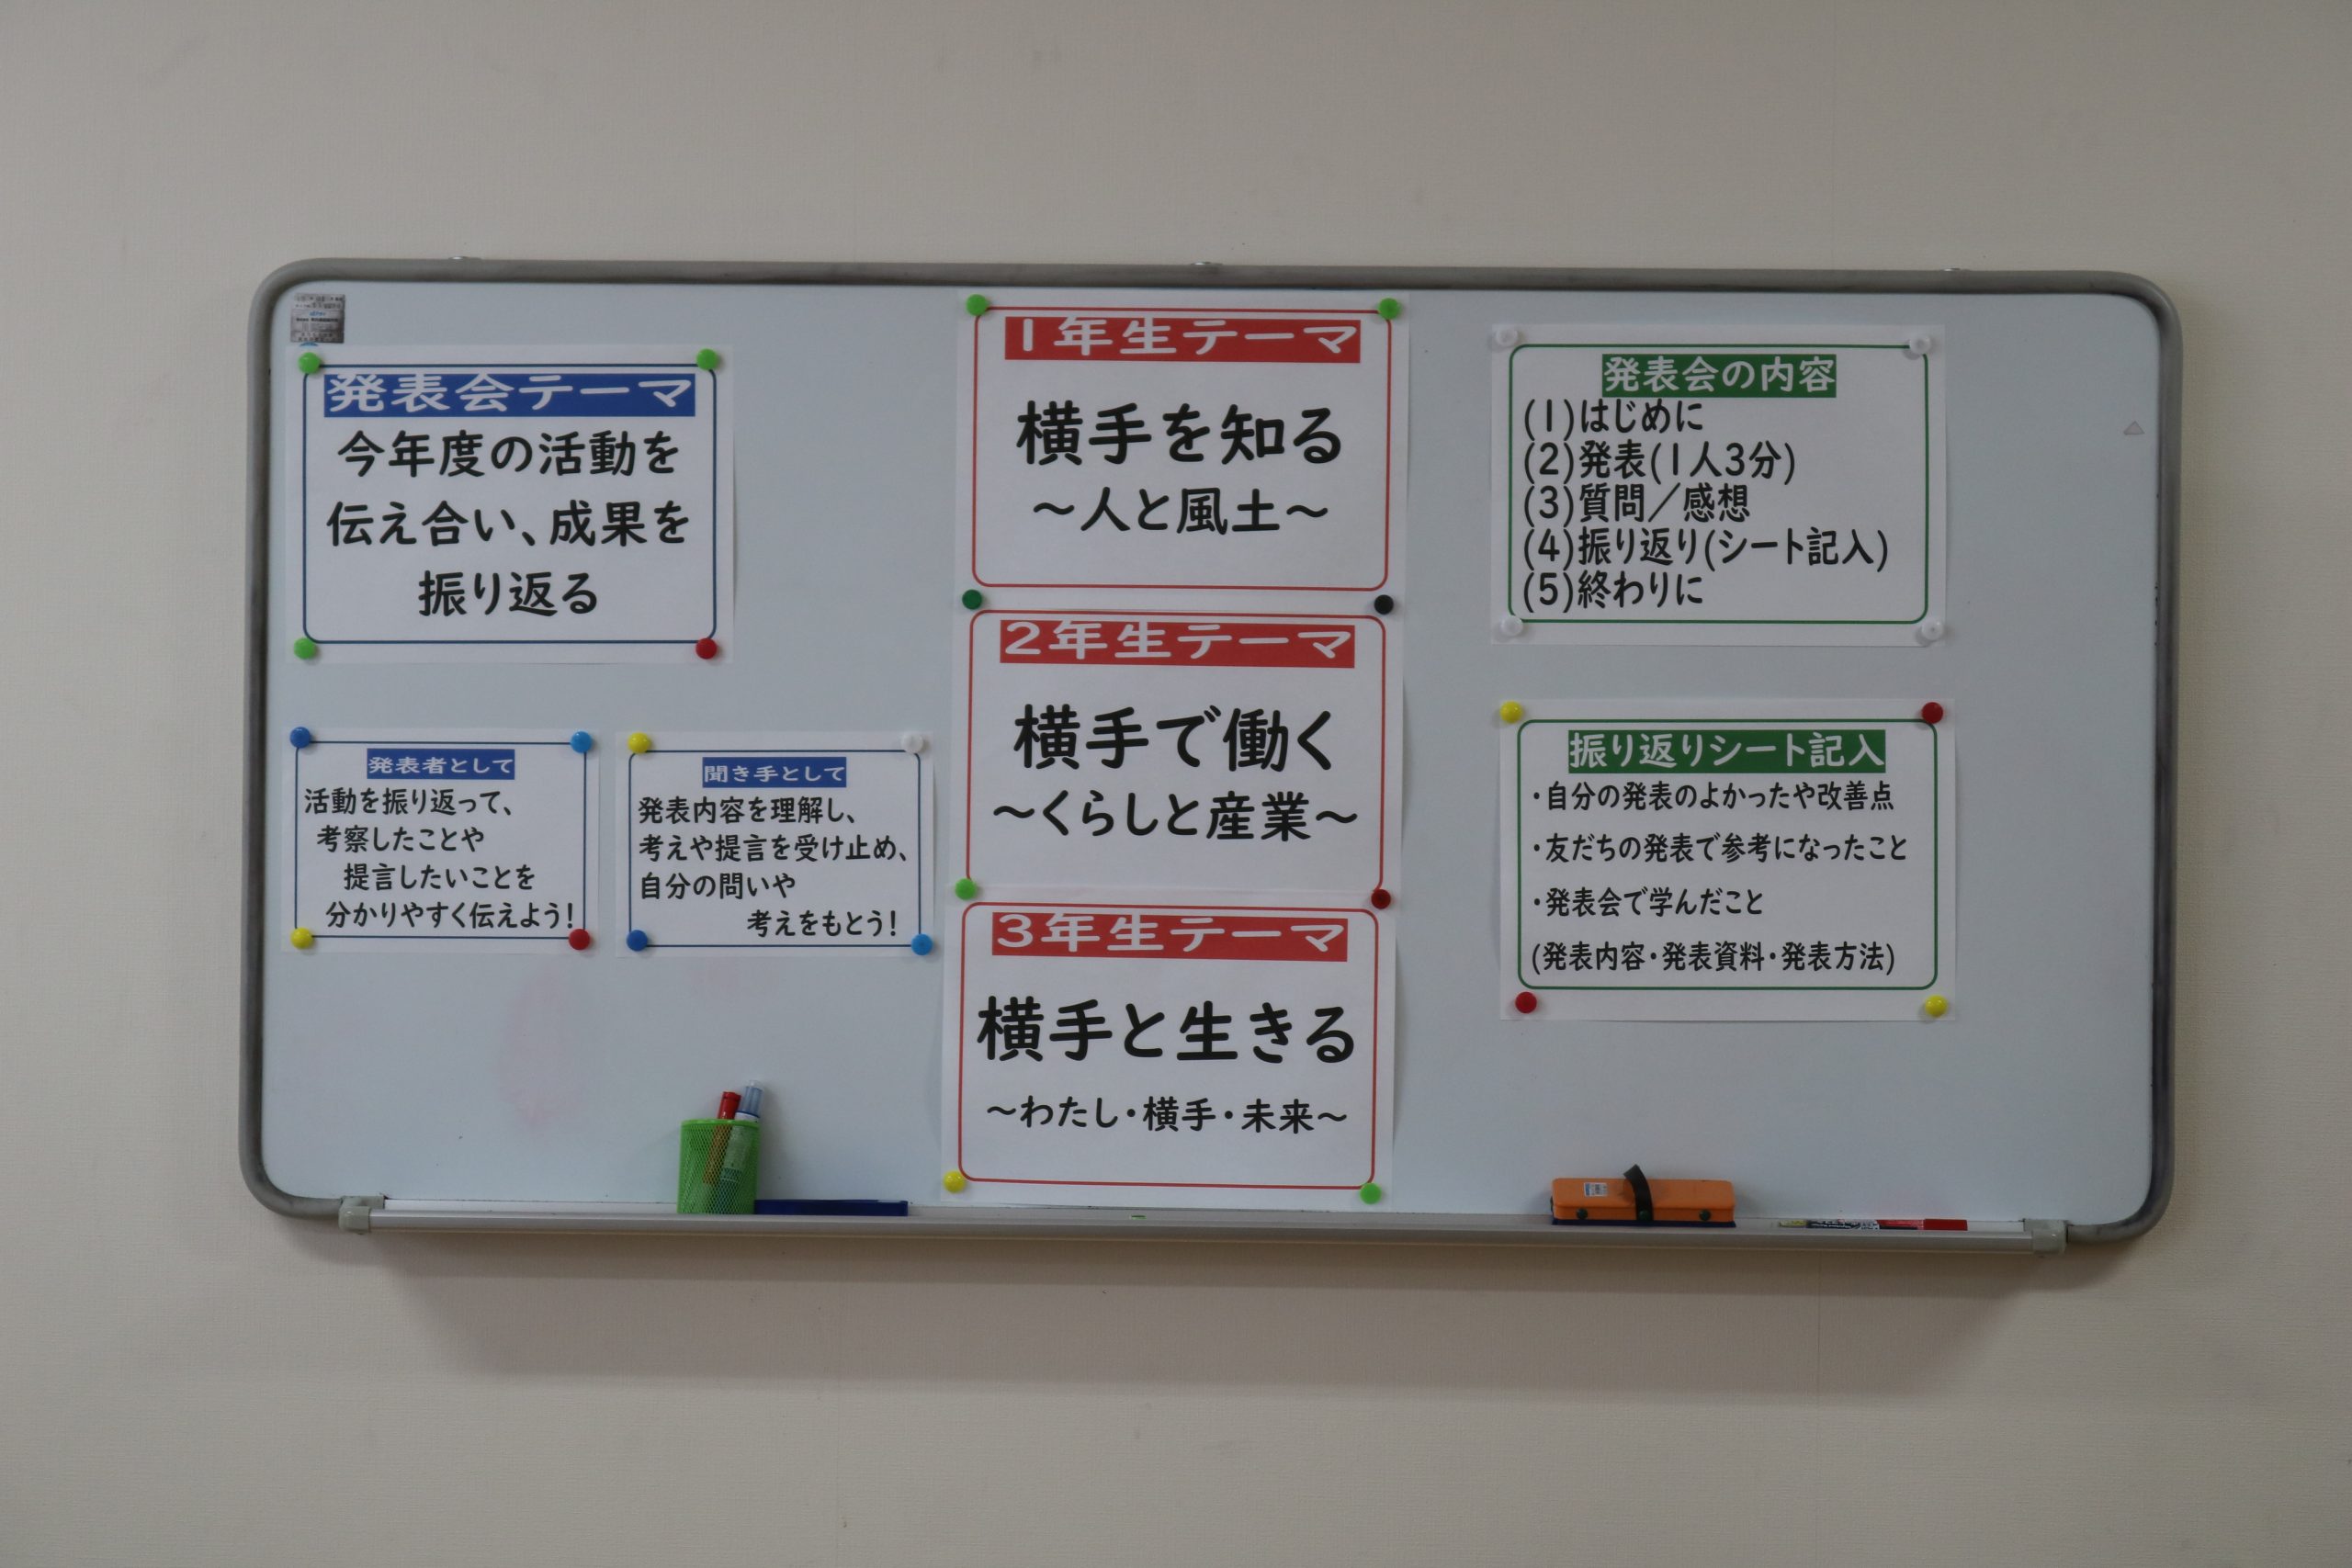 発表会テーマ
今年度の活動を
伝え合い、成果を
振り返る
発表者として
活動を振り返って、
考察したことや
提言したいことを
分かりやすく伝えよう!
聞き手として
発表内容を理解し、
考えや提言を受け止め、
自分の問いや
考えをもとう!
1年生テーマ
横手を知る
～人と風土～
2年生テーマ
横手で働く
～くらしと産業～
3年生テーマ
横手と生きる
～わたし・横手・未来～
発表会の内容
(1)はじめに
(2)発表(1人3分)
(3)質問／感想
(4)振り返り(シート記入)
(5)終わりに
振り返りシート記入
・自分の発表のよかったや改善点
・友だちの発表で参考になったこと
・発表会で学んだこと
(発表内容・発表資料・発表方法)